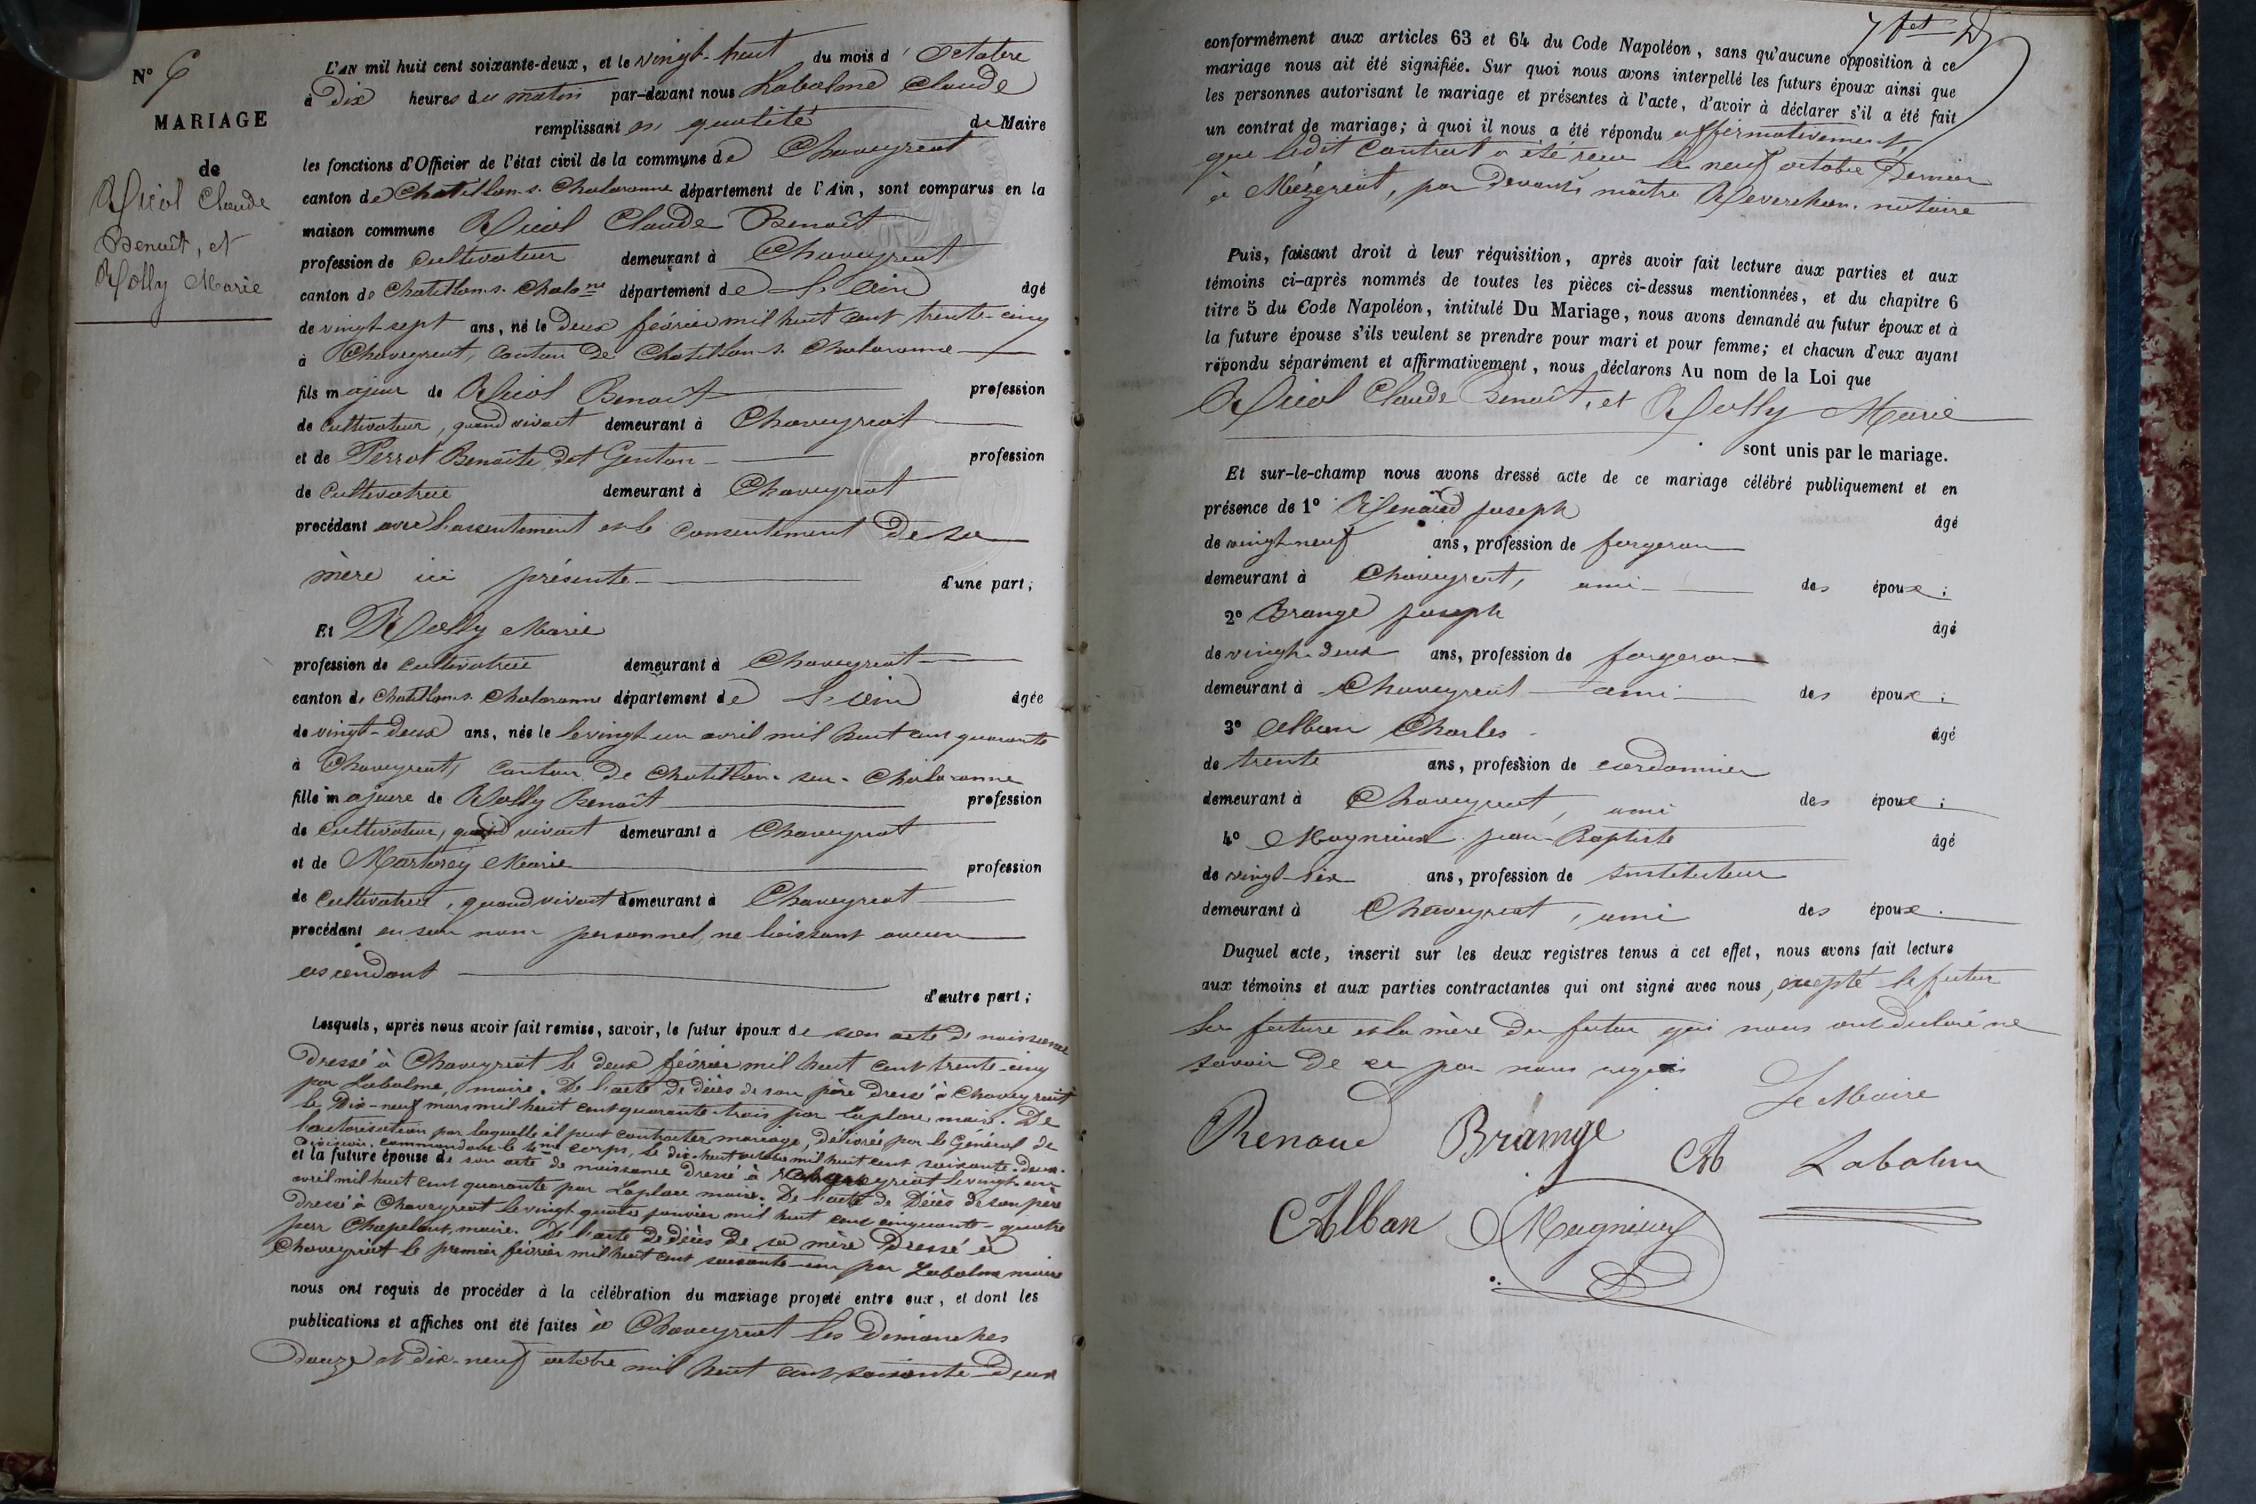 N° 6
MARIAGE
de
Ricol Claude
Benoît, et
Rolly Marie
L'AN mil huit cent soixante-deux, et le vingt-huit du mois d'octobre
à Dix heures du matin par-devant nous Labalme Claude
remplissant en qualité de Maire
les fonctions d'Officier de l'état civil de la commune de Chaveyriat
canton de Chatillon-s-Chalaronne département de l'Ain, sont comparus en la
maison commune Ricol Claude Benoît
profession de cultivateur demeurant à Chaveyriat
canton de Chatillon-s-Chalone département de L'Ain âgé
de vingt-sept ans, né le deux février mil huit cent trente-cinq
à Chaveyriat, canton de Chatillon-s-Chalaronne
fils majeur de Ricol Benoît profession
de cultivateur, quand vivait demeurant à Chaveyriat
et de Perrot Benoîte, dit Genton profession
de cultivatrice demeurant à Chaveyriat
procédant avec l'assentiment et le consentement de sa
mère ici présente d'une part;
Et Rolly Marie
profession de cultivatrice demeurant à Chaveyriat
canton de Chatillon-s-Chalaronne département de L'ain âgée
de vingt-deux ans, née le le vingt un avril mil huit cent quarante
à Chaveyriat, canton de Chatillon-sur-Chalaronne
fille majeure de Rolly Benoît profession
de cultivateur, quand vivait demeurant à Chaveyriat
et de Martorey Marie profession
de cultivatrice, quand vivait demeurant à Chaveyriat
procédant en son nom personnel, ne laissant aucun
ascendant
d'autre part;
Lesquels, après nous avoir fait remise, savoir, le futur époux de son acte de naissance
dressé à Chaveyriat le deux février mil huit cent trente-cinq
par Labalme, maire. De l'acte de décès de son père dressé à Chaveyriat
le dix-neuf mars mil huit cent quarante-trois par Laplace, maire. De
l'autorisation par laquelle il peut contracter mariage, délivrée par le Général de
Division, commandant le 4me corps, le dix-huit octobre mil huit cent soixante-deux.
et la future épouse de son acte de naissance dressé à Chaveyriat le vingt-un
avril mil huit cent quarante par Laplace maire. De l'acte de Décès de son père
dressé à Chaveyriat le vingt-quatre janvier mil huit cent cinquante-quatre
par Chapelout, maire. De l'acte de décès de sa mère dressé à
Chaveyriat le premier février mil huit cent soixante-un par Labalme maire
nous ont requis de procéder à la célébration du mariage projeté entre eux, et dont les
publications et affiches ont été faites à Chaveyriat les dimanches
douze et dix-neuf octobre mil huit cent soixante-deux
conformément aux articles 63 et 64 du Code Napoléon, sans qu'aucune opposition à ce
mariage nous ait été signifiée. Sur quoi nous avons interpellé les futurs époux ainsi que
les personnes autorisant le mariage et présentes à l'acte, d'avoir à déclarer s'il a été fait
un contrat de mariage; à quoi il nous a été répondu affirmativement,
que ledit contrat a été reçu le neuf octobre dernier
à Mézériat, par devant maître Reverchon, notaire
Puis, faisant droit à leur réquisition, après avoir fait lecture aux parties et aux
témoins ci-après nommés de toutes les pièces ci-dessus mentionnées, et du chapitre 6
titre 5 du Code Napoléon, intitulé Du Mariage, nous avons demandé au futur époux et à
la future épouse s'ils veulent se prendre pour mari et pour femme; et chacun d'eux ayant
répondu séparément et affirmativement, nous déclarons Au nom de la Loi que
Ricol Claude Benoît, et Rolly Marie
sont unis par le mariage.
Et sur-le-champ nous avons dressé acte de ce mariage célébré publiquement et en
présence de 1° Renaud Joseph âgé
de vingt-neuf ans, profession de forgeron
demeurant à Chaveyriat, ami des époux;
2° Brange Joseph âgé
de vingt-deux ans, profession de forgeron
demeurant à Chaveyriat ami des époux;
3° Alban Charles âgé
de trente ans, profession de cordonnier
demeurant à Chaveyriat, ami des époux;
4° Magnieux Jean-Baptiste âgé
de vingt-six ans, profession de Instituteur
demeurant à Chaveyriat, ami des époux.
Duquel acte, inscrit sur les deux registres tenus à cet effet, nous avons fait lecture
aux témoins et aux parties contractantes qui ont signé avec nous, excepté le futur
la future et la mère du futur qui nous ont déclaré ne
savoir de ce par nous requis
Le Maire
Renaud Bramge Labalme
CAlban Magnieux